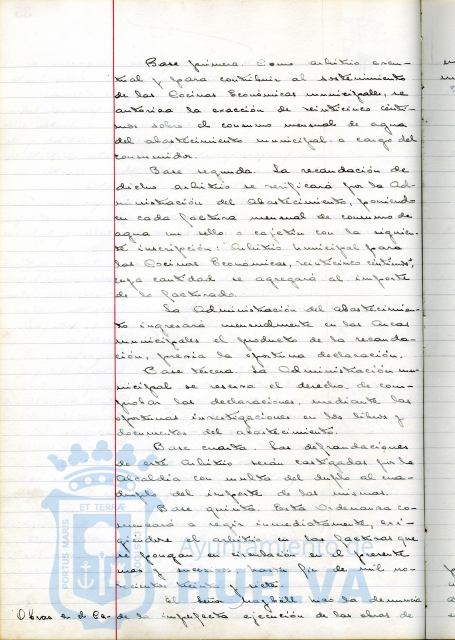 Base primera. Como arbitrio even-
tual y para contribuir al sostenimiento
de las Cocinas Económicas municipales, se
autoriza la exacción de veinticinco cénti-
mos sobre el consumo mensual de agua
del abastecimiento municipal a cargo del
consumidor.
Base segunda. La recaudación de
dicho arbitrio se verificará por la Ad-
ministración del Abastecimiento, poniendo
en cada factura mensual de consumo de
agua un sello o cajetín con la siguien-
te inscripción: "Arbitrio Municipal para
las Cocinas Económicas, veinticinco céntimos",
cuya cantidad se agregará al importe
de lo facturado.
La Administración del abastecimien-
to ingresará mensualmente en las Arcas
municipales el producto de la recauda-
ción, previa la oportuna declaración.
Base tercera. La Administración mu-
nicipal se reserva el derecho de com-
probar las declaraciones, mediante las
oportunas investigaciones en los libros y
documentos del abastecimiento.
Base cuarta. Las defraudaciones
de este Arbitrio serán castigadas por la
Alcaldía con multa del duplo al cuá-
druplo del importe de las mismas.
Base quinta. Esta Ordenanza co-
menzará a regir inmediatamente, exi-
giéndose el arbitrio en las facturas que
se pongan en circulación en el presente
mes y vencerá para fin de mil no-
vecientos treinta y siete.
El Señor hizo la denuncia
Obras en el Ce- de la imperfecta ejecución de las obras de
ET TERRÆ
PORTUS MARIS
CUSTODIA
Ayuntamiento de
HUELVA